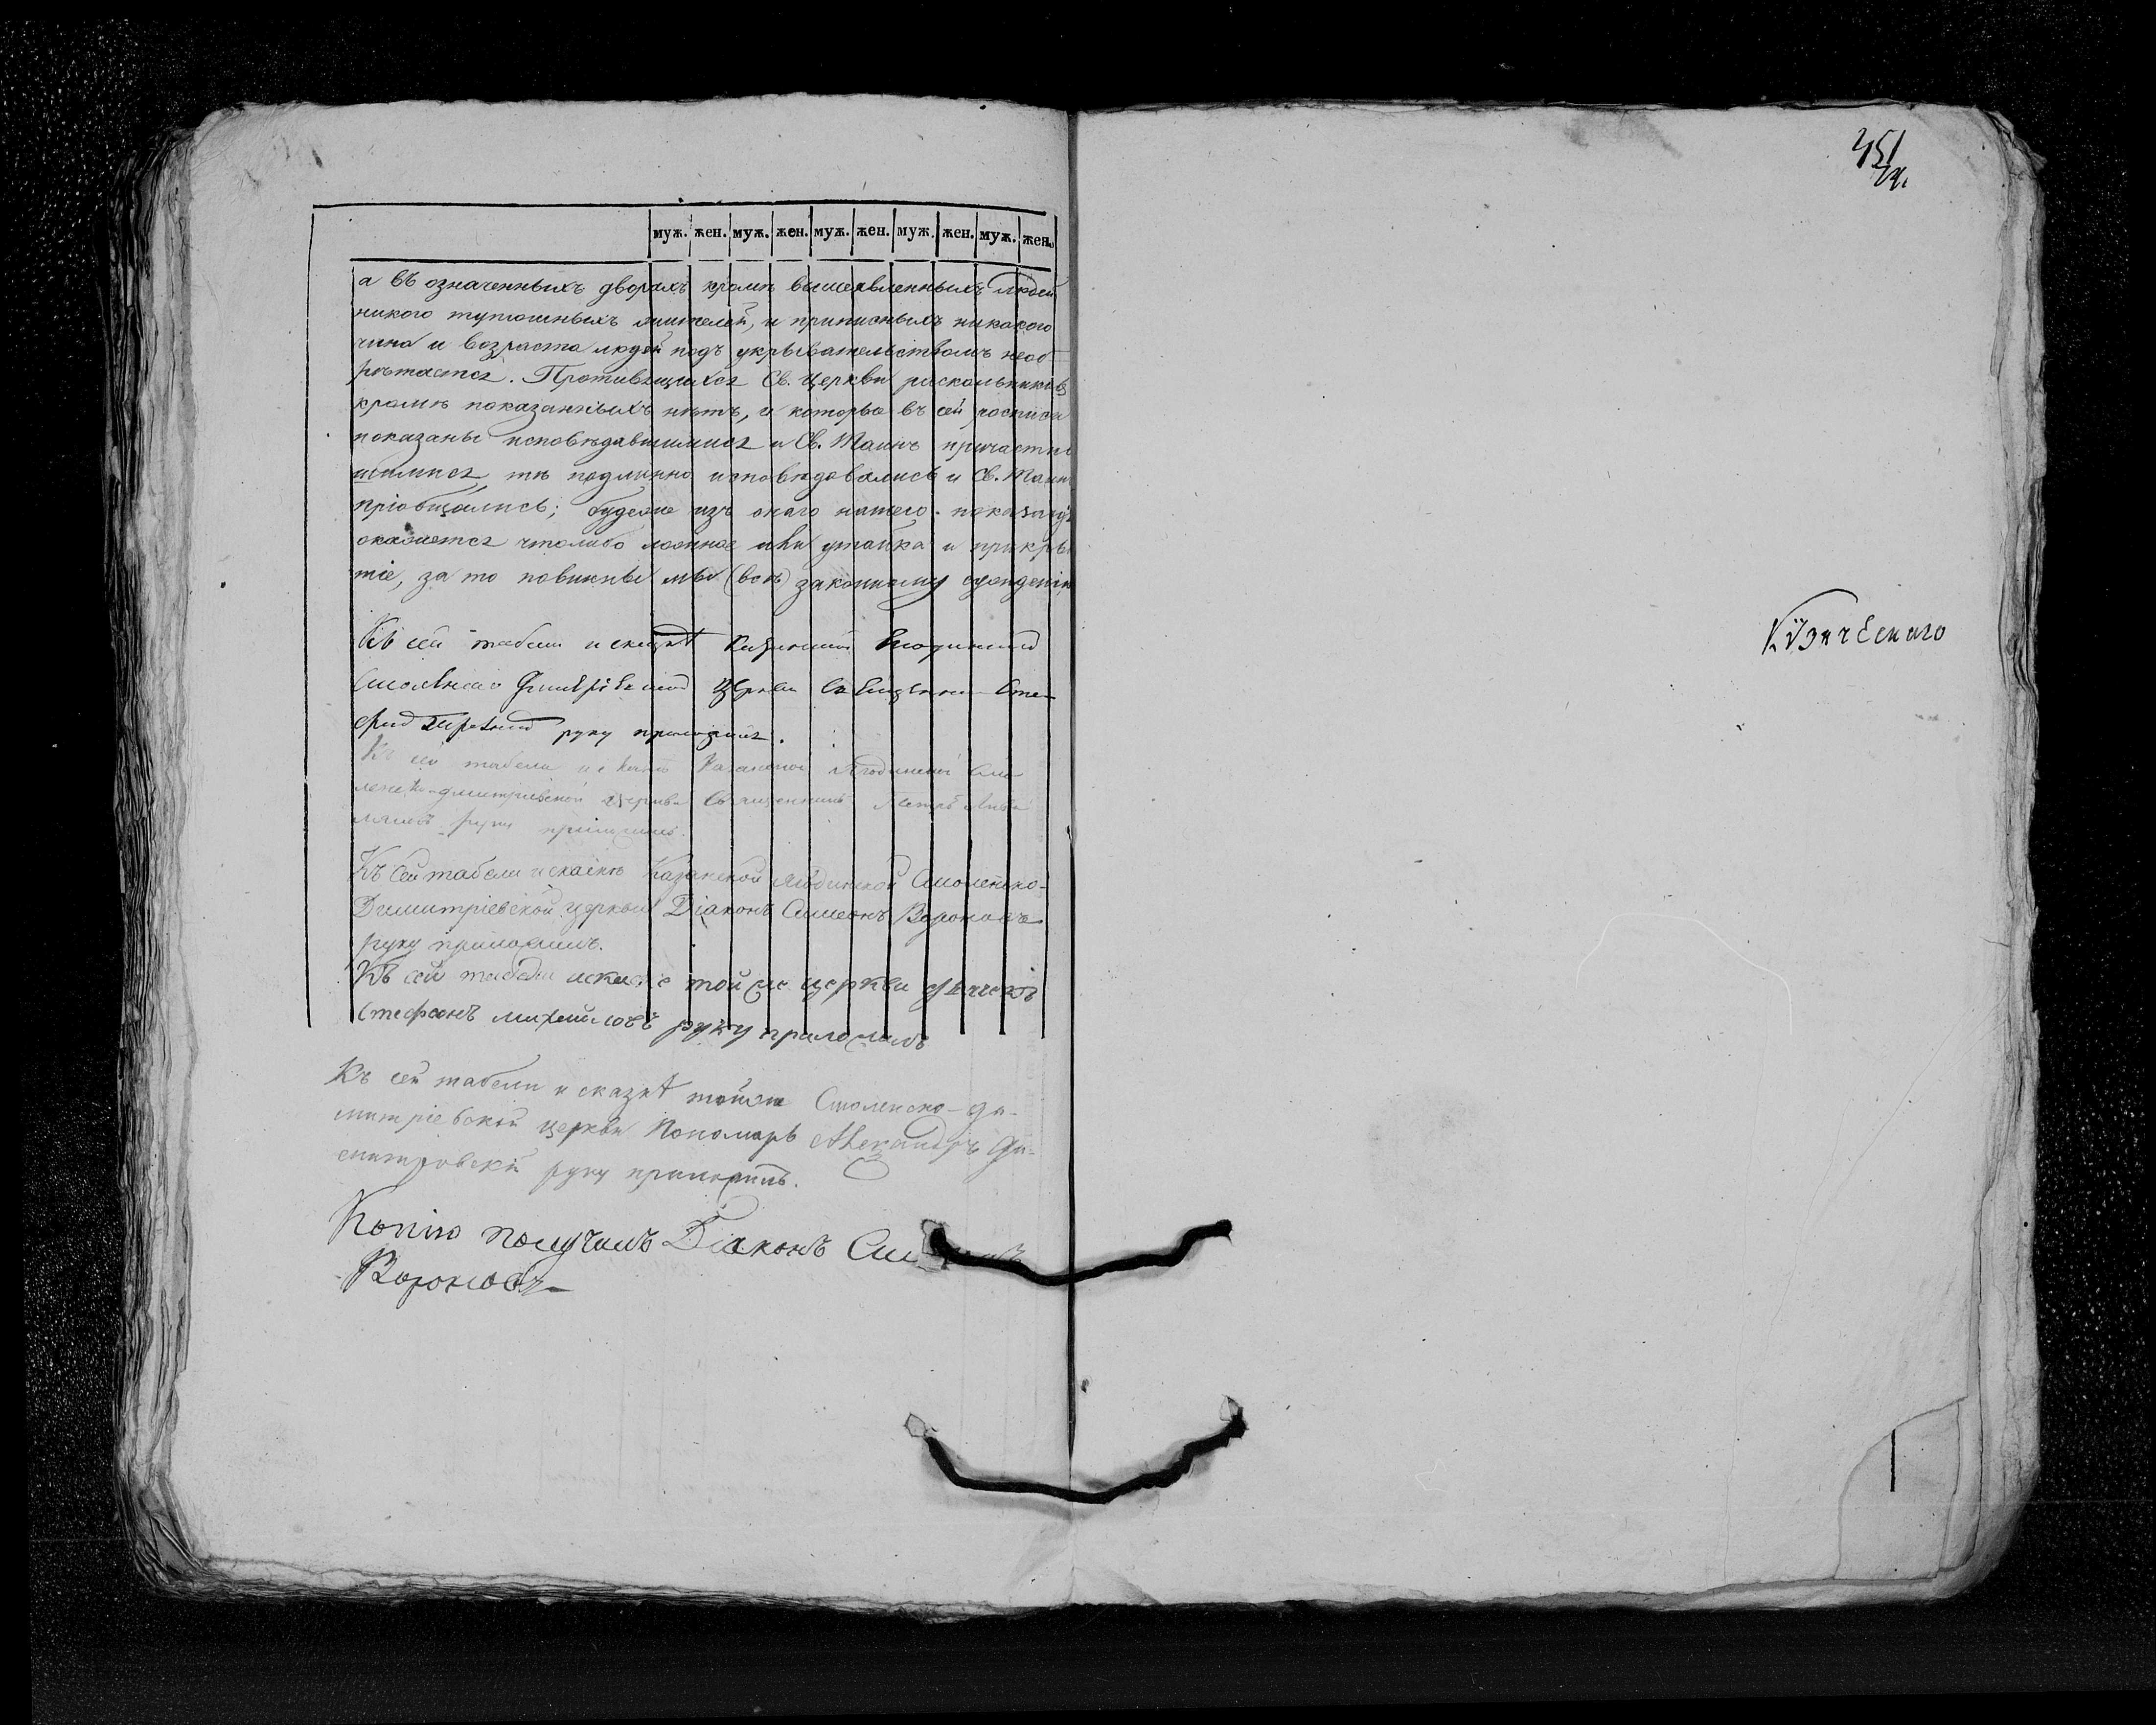 муж. жен. муж. жен. муж. жен. муж. жен. муж. жен.
а въ означенныхъ дворахъ кромѣ вышеявленныхъ людей
никого тутошныхъ жителей, и приписныхъ никакого
чина и возраста людей подъ укрывательствомъ необ-
рѣтается. Противящихся Св. Церкви раскольниковъ
кромѣ показанныхъ нѣтъ, и которые въ сей росписи
показаны исповѣдавшимися и Св. Таинъ причастив
шимися, тѣ подлинно исповѣдовались и Св. Таинъ
пріобщались; буде же изъ онаго нашего показанія
окажется чтолибо ложное или утайка и прикры
тіе, за то повинны мы (всѣ) законному сужденію
Къ сей табели и сказкѣ Казанской Ягодинской
Смоленско Димитріевской Церкви Священникъ Сте-
фанъ руку приложилъ.
Къ сей табели и сказкѣ Казанской Ягодинской Смо
ленско-Димитріевской церкви Священникъ Петръ
руку приложилъ.
Къ сей табели и сказкѣ Казанской Ягодинской Смоленско-
Димитріевской церкви Діаконъ Симеонъ Вороновъ
руку приложилъ.
Къ сей табели искаске той же церкви дьячекъ
Стефанъ Михайловъ руку приложилъ
Къ сей табели и сказкѣ тойже Смоленско-Ди-
митріевской церкви Пономарь Александръ Ди-
митровскій руку приложилъ.
Копію получилъ Діаконъ
Вороновъ
451
Кузическаго